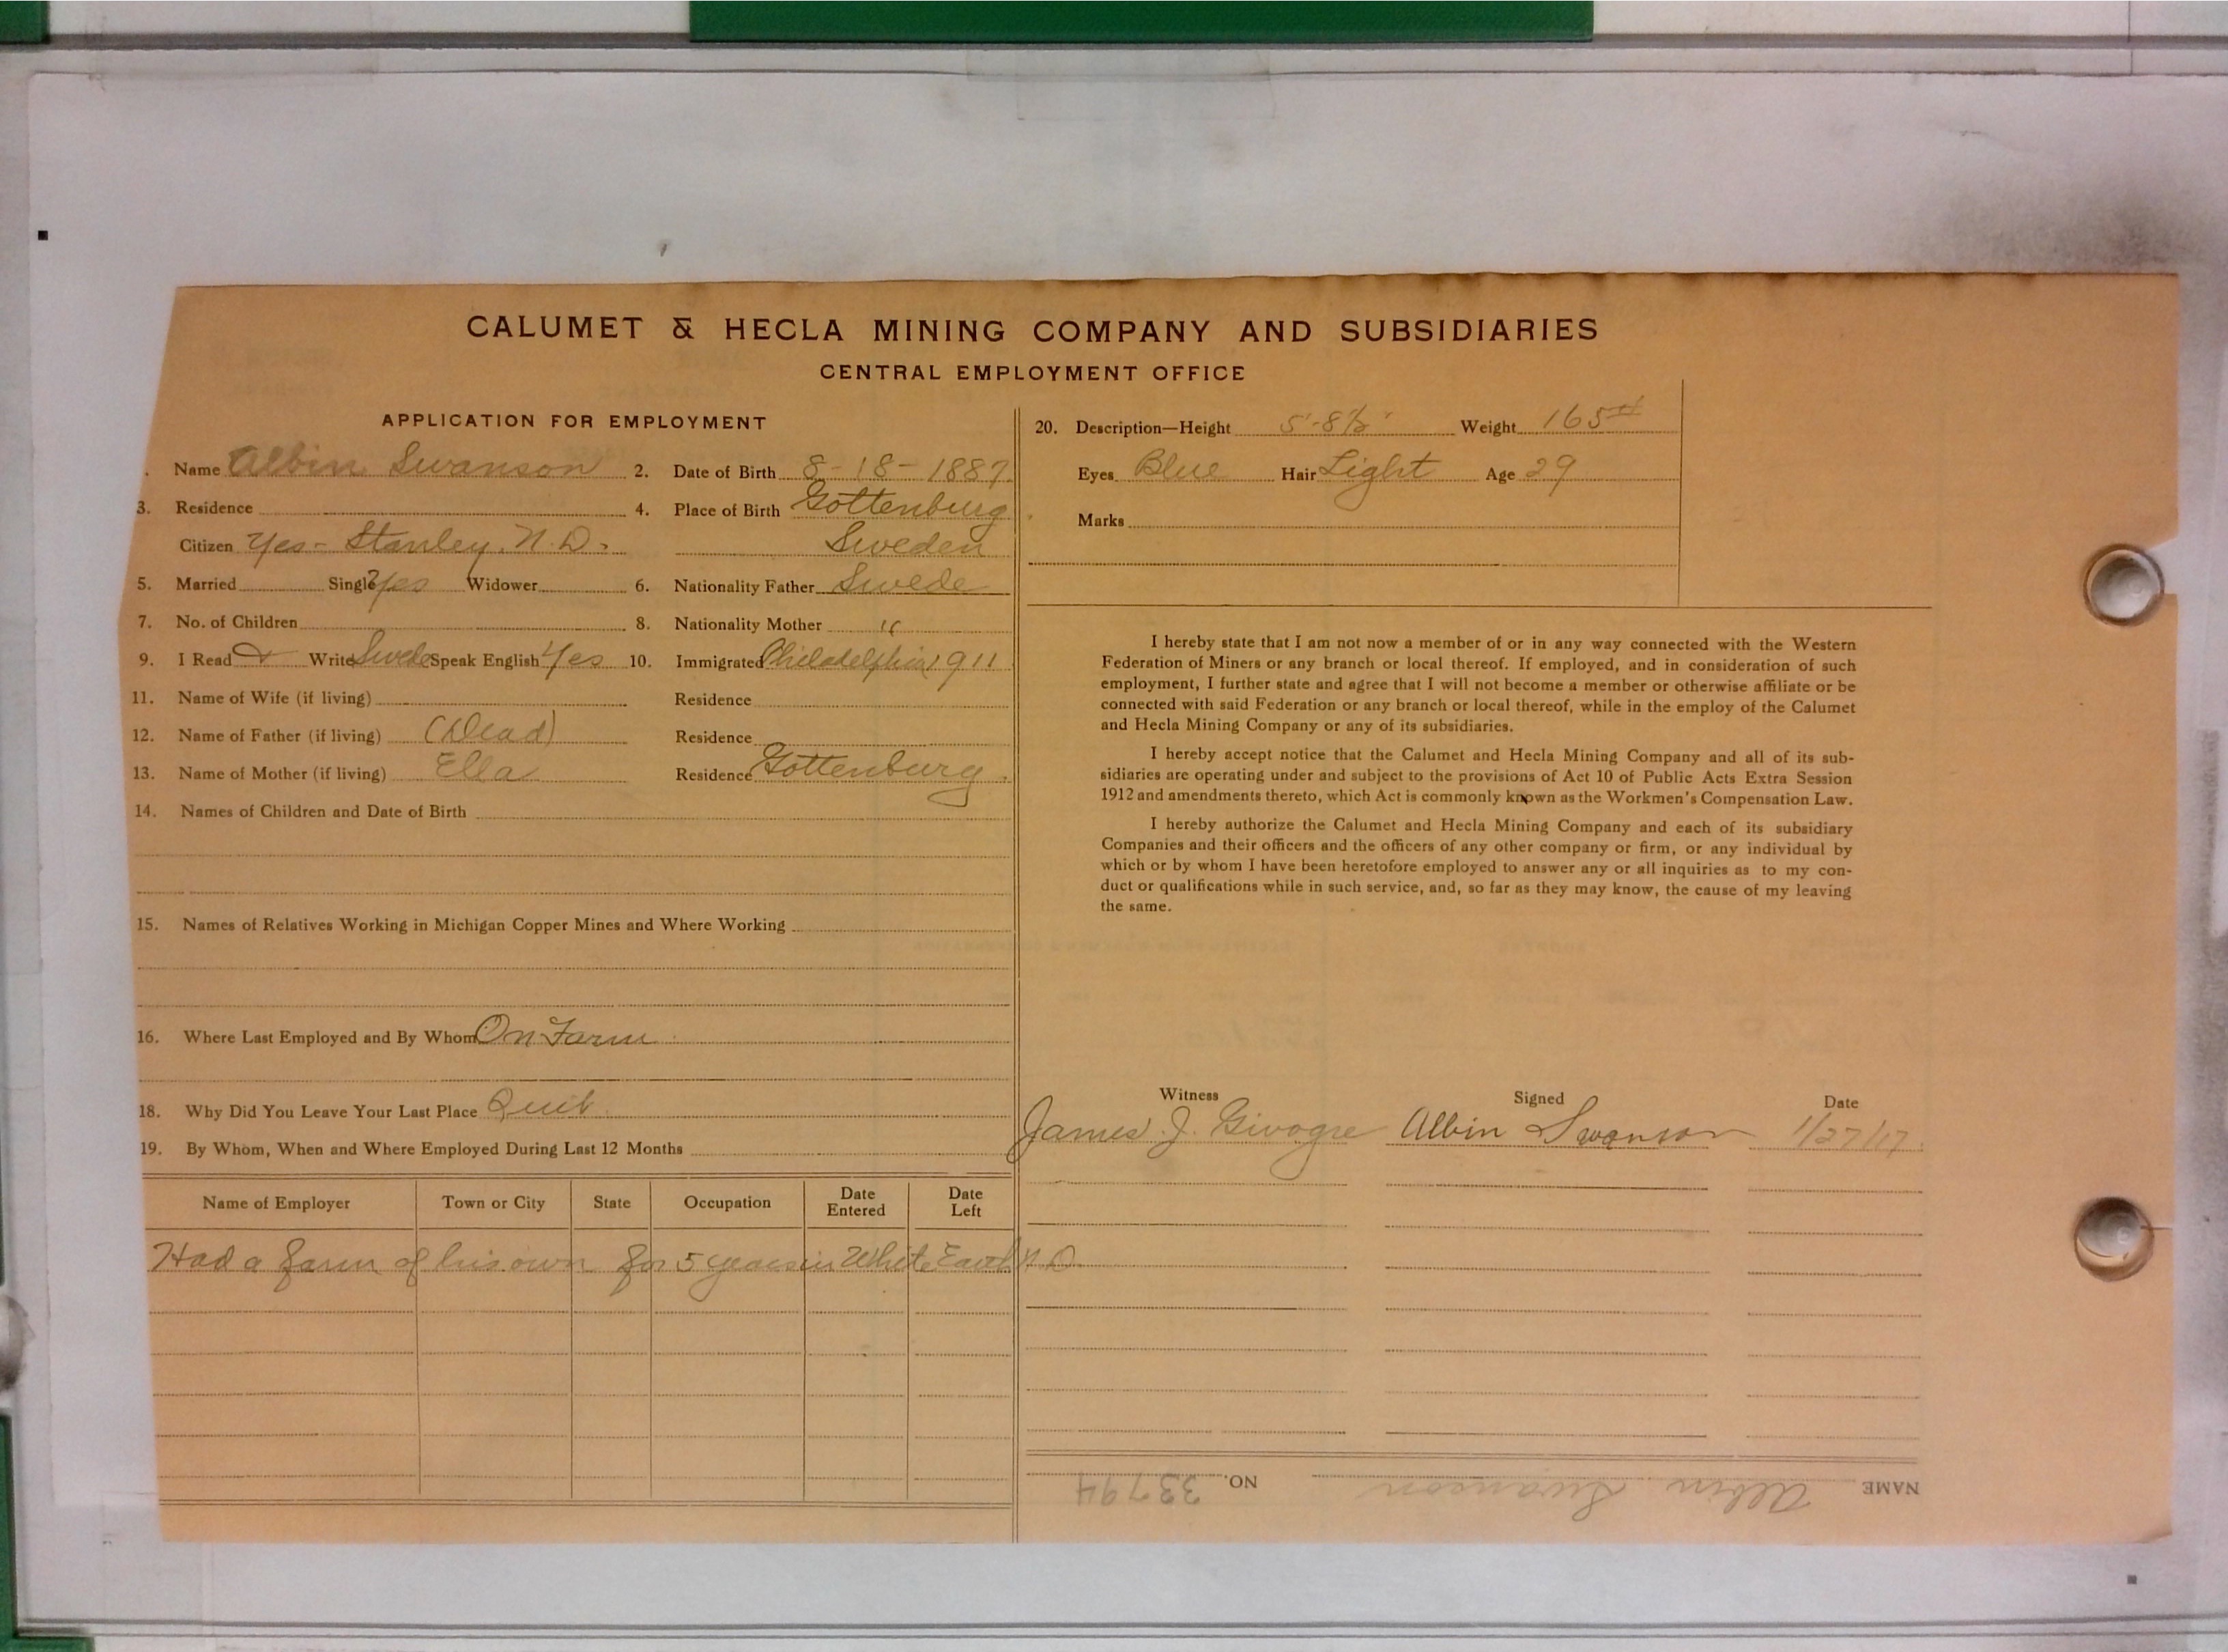 CALUMET & HECLA MINING COMPANY AND SUBSIDIARIES
CENTRAL EMPLOYMENT OFFICE
APPLICATION FOR EMPLOYMENT
. Name Albin Swanson 2. Date of Birth 8-18-1887
3. Residence 4. Place of Birth Gottenburg
Citizen Yes - Stanley, N.D. Sweden
5. Married Single Yes Widower 6. Nationality Father Swede
7. No. of Children 8. Nationality Mother "
9. I Read & Write Swede Speak English Yes 10. Immigrated Philadelphia 1911
11. Name of Wife (if living) Residence
12. Name of Father (if living) (Dead) Residence
13. Name of Mother (if living) Ella Residence Gottenburg
14. Names of Children and Date of Birth
15. Names of Relatives Working in Michigan Copper Mines and Where Working
16. Where Last Employed and By Whom On Farm
18. Why Did You Leave Your Last Place Quit
19. By Whom, When and Where Employed During Last 12 Months
Name of Employer Town or City State Occupation Date Entered Date Left
Had a farm of his own for 5 years in White Earth N.D.
20. Description—Height 5'-8½" Weight 165#
Eyes Blue Hair Light Age 29
Marks
I hereby state that I am not now a member of or in any way connected with the Western
Federation of Miners or any branch or local thereof. If employed, and in consideration of such
employment, I further state and agree that I will not become a member or otherwise affiliate or be
connected with said Federation or any branch or local thereof, while in the employ of the Calumet
and Hecla Mining Company or any of its subsidiaries.
I hereby accept notice that the Calumet and Hecla Mining Company and all of its sub-
sidiaries are operating under and subject to the provisions of Act 10 of Public Acts Extra Session
1912 and amendments thereto, which Act is commonly known as the Workmen's Compensation Law.
I hereby authorize the Calumet and Hecla Mining Company and each of its subsidiary
Companies and their officers and the officers of any other company or firm, or any individual by
which or by whom I have been heretofore employed to answer any or all inquiries as to my con-
duct or qualifications while in such service, and, so far as they may know, the cause of my leaving
the same.
Witness Signed Date
James J. Albin Swanson 1/27/17
NAME Albin Swanson NO. 33794